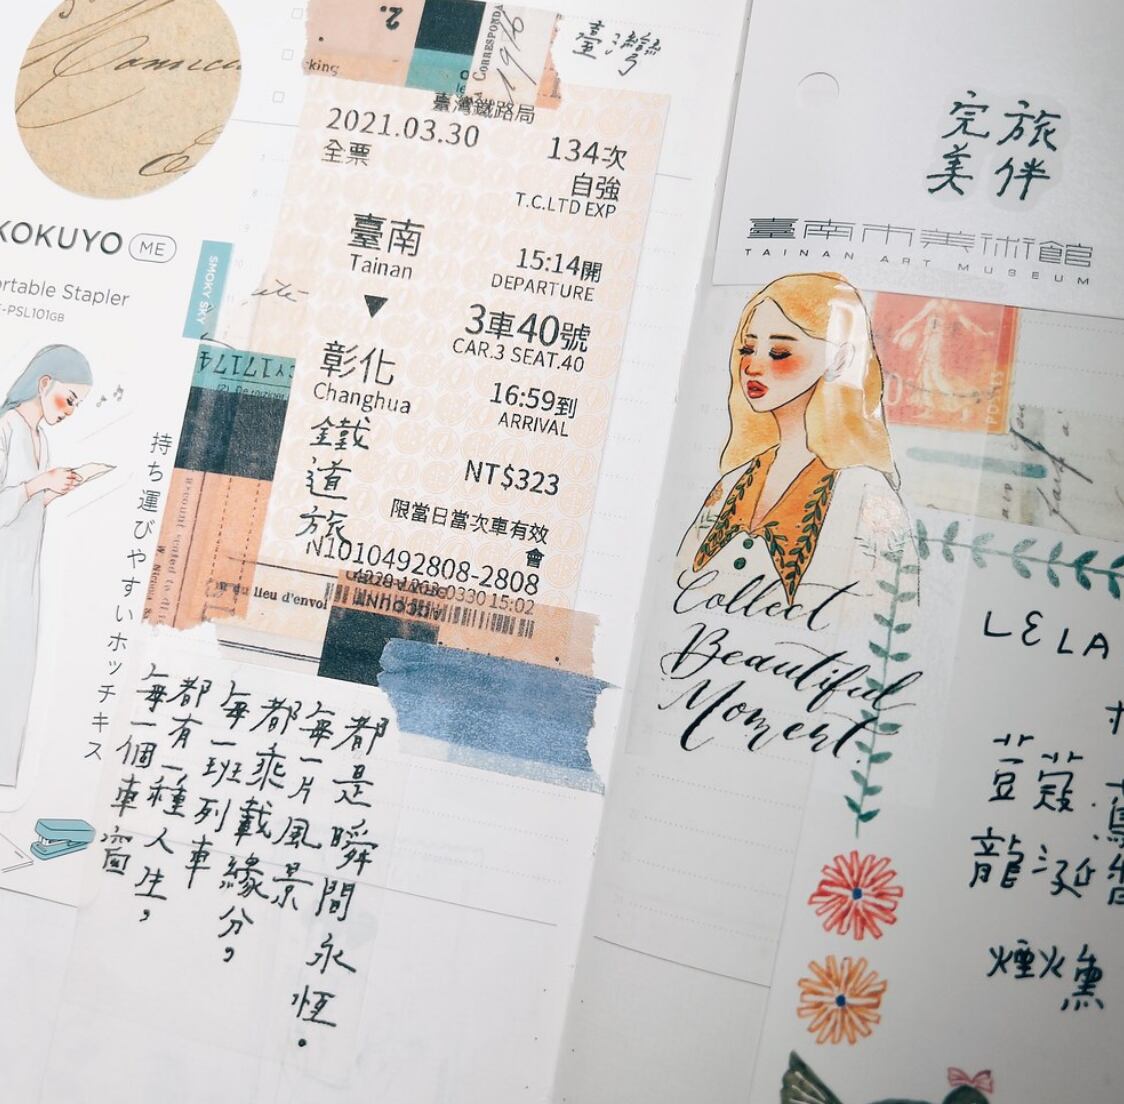 KOKUYO ME
rtable Stapler
-PSL101GB
SMOKY SKY
持ち運びやすいホッチキス
2.
king
CORRESPONDA
1916
臺灣
臺灣鐵路局
2021.03.30
134次
全票
自強
T.C.LTD EXP
臺南
Tainan
15:14開
DEPARTURE
3車40號
CAR.3 SEAT.40
彰化
Changhua
16:59到
ARRIVAL
NT$323
鐵道旅
限當日當次車有效
會
N1010492808-2808
0330 15:02
lieu d'envoi
每一個車窗
都有一種人生，
每一班列車
都乘載緣分，
每一片風景
都是瞬間永恆．
完美
旅伴
臺南市美術館
TAINAN ART MUSEUM
Collect
Beautiful
Moment.
LELA
荳蔻
龍涎
煙火熏